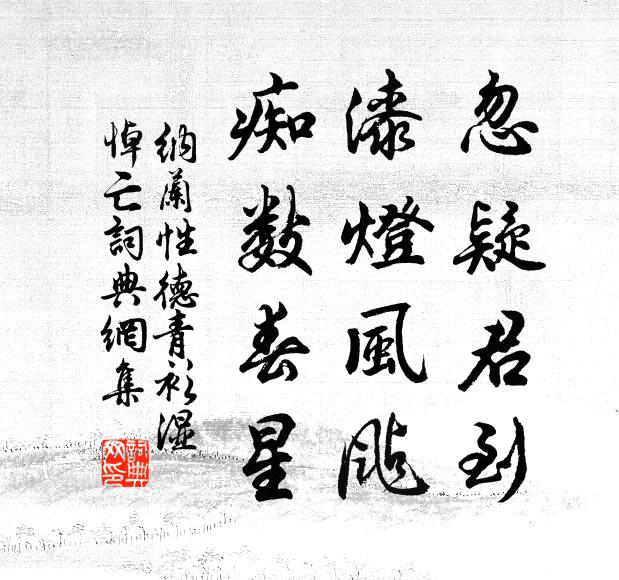 忽疑君到
漆燈風颭
痴數春星
納蘭性德青衫濕
悼亡詞典網集
詞典網印